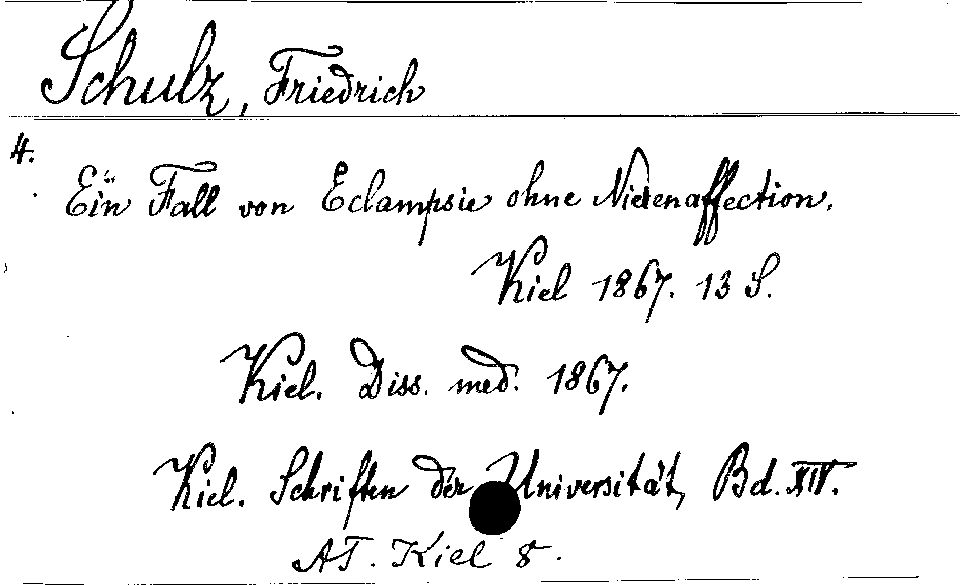 Schulz, Friedrich
4.
Ein Fall von Eclampsie ohne Nierenaffection.
Kiel 1867. 13 S.
Kiel. Diss. med. 1867.
Kiel. Schriften der Universität, Bd. XIV.
AT. Kiel 8.